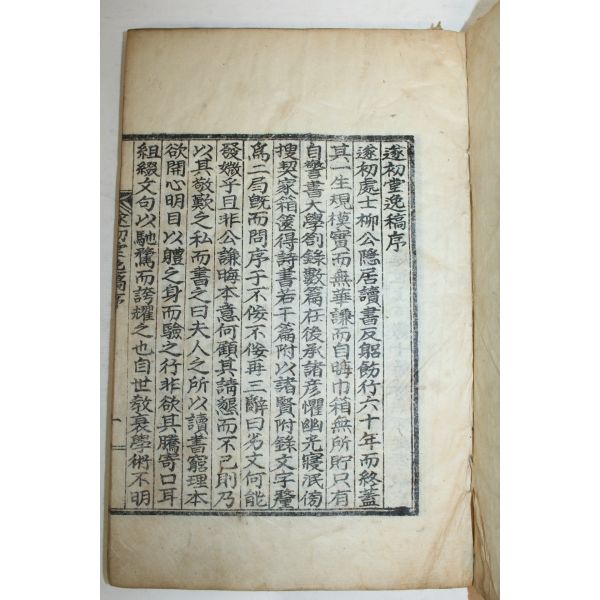 遂初堂逸稿序
遂初處士柳公隱居讀書反躬飭行六十年而終蓋
其一生規模實而無華謙而自晦巾箱無所貯只有
自警書大學劄錄數篇在後承諸彦懼幽光寢泯傍
搜契家箱篋得詩書若干篇附以諸賢附錄文字釐
爲二局旣而問序于不佞不佞再三辭曰劣文何能
發媺乎曰非公謙晦本意何顧其請懇而不已則乃
以其敬歎之私而書之曰夫人之所以讀書窮理本
欲開心明目以軆之身而驗之行非欲其騰寄口耳
組綴文句以馳騖而誇耀之也自世敎衰學術不明
遂初堂逸稿序
一